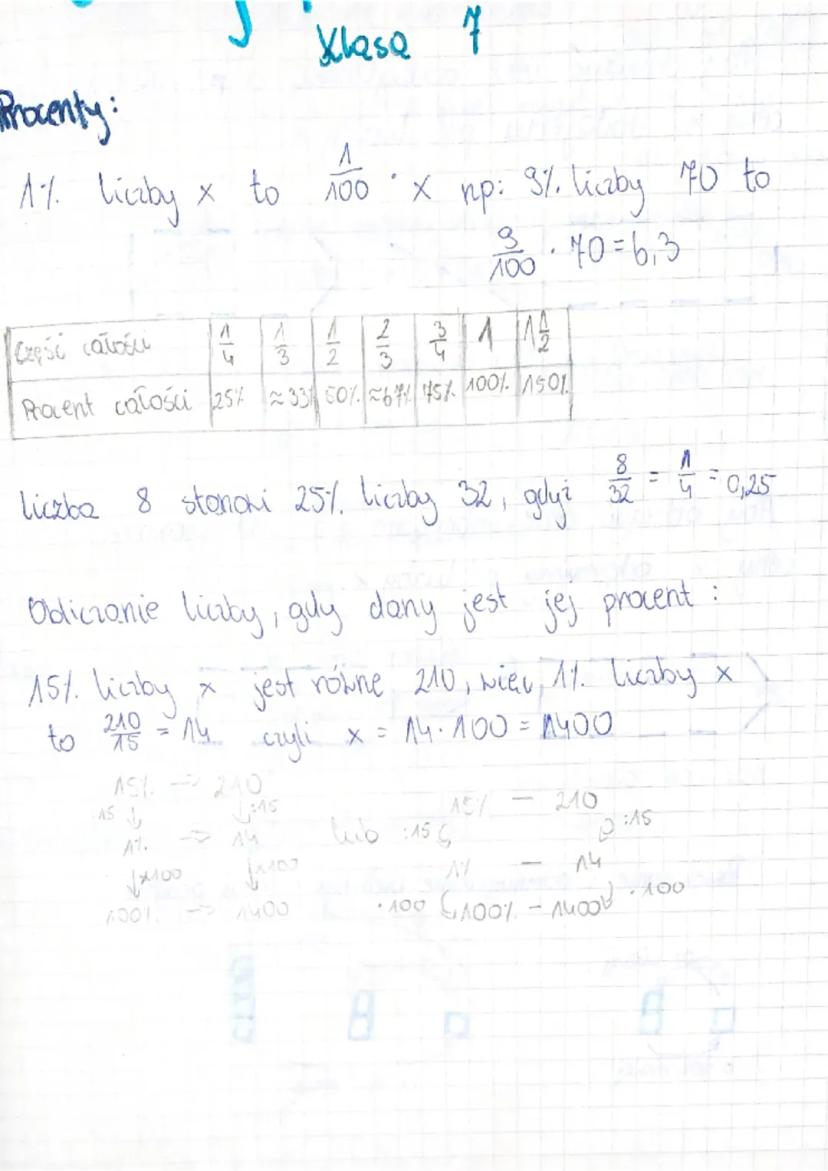 Klasa 7
Procenty:
1% liczby x to 1/100 · x np: 9% liczby 70 to
9/100 · 70 = 6,3
Część całości 1/4 1/3 1/2 2/3 3/4 1 1 1/2
Procent całości 25% ≈33% 50% ≈67% 75% 100% 150%
liczba 8 stanowi 25% liczby 32, gdyż 8/32 = 1/4 = 0,25
Obliczanie liczby, gdy dany jest jej procent:
15% liczby x jest równe 210, więc 1% liczby x
to 210/15 = 14 czyli x = 14·100 = 1400
15% → 210 15% — 210
:15 ↓ ↓:15 lub :15 :15
1% → 14 1% — 14
↓x100 ↓x100
100% → 1400 ·100 100% – 1400 ·100